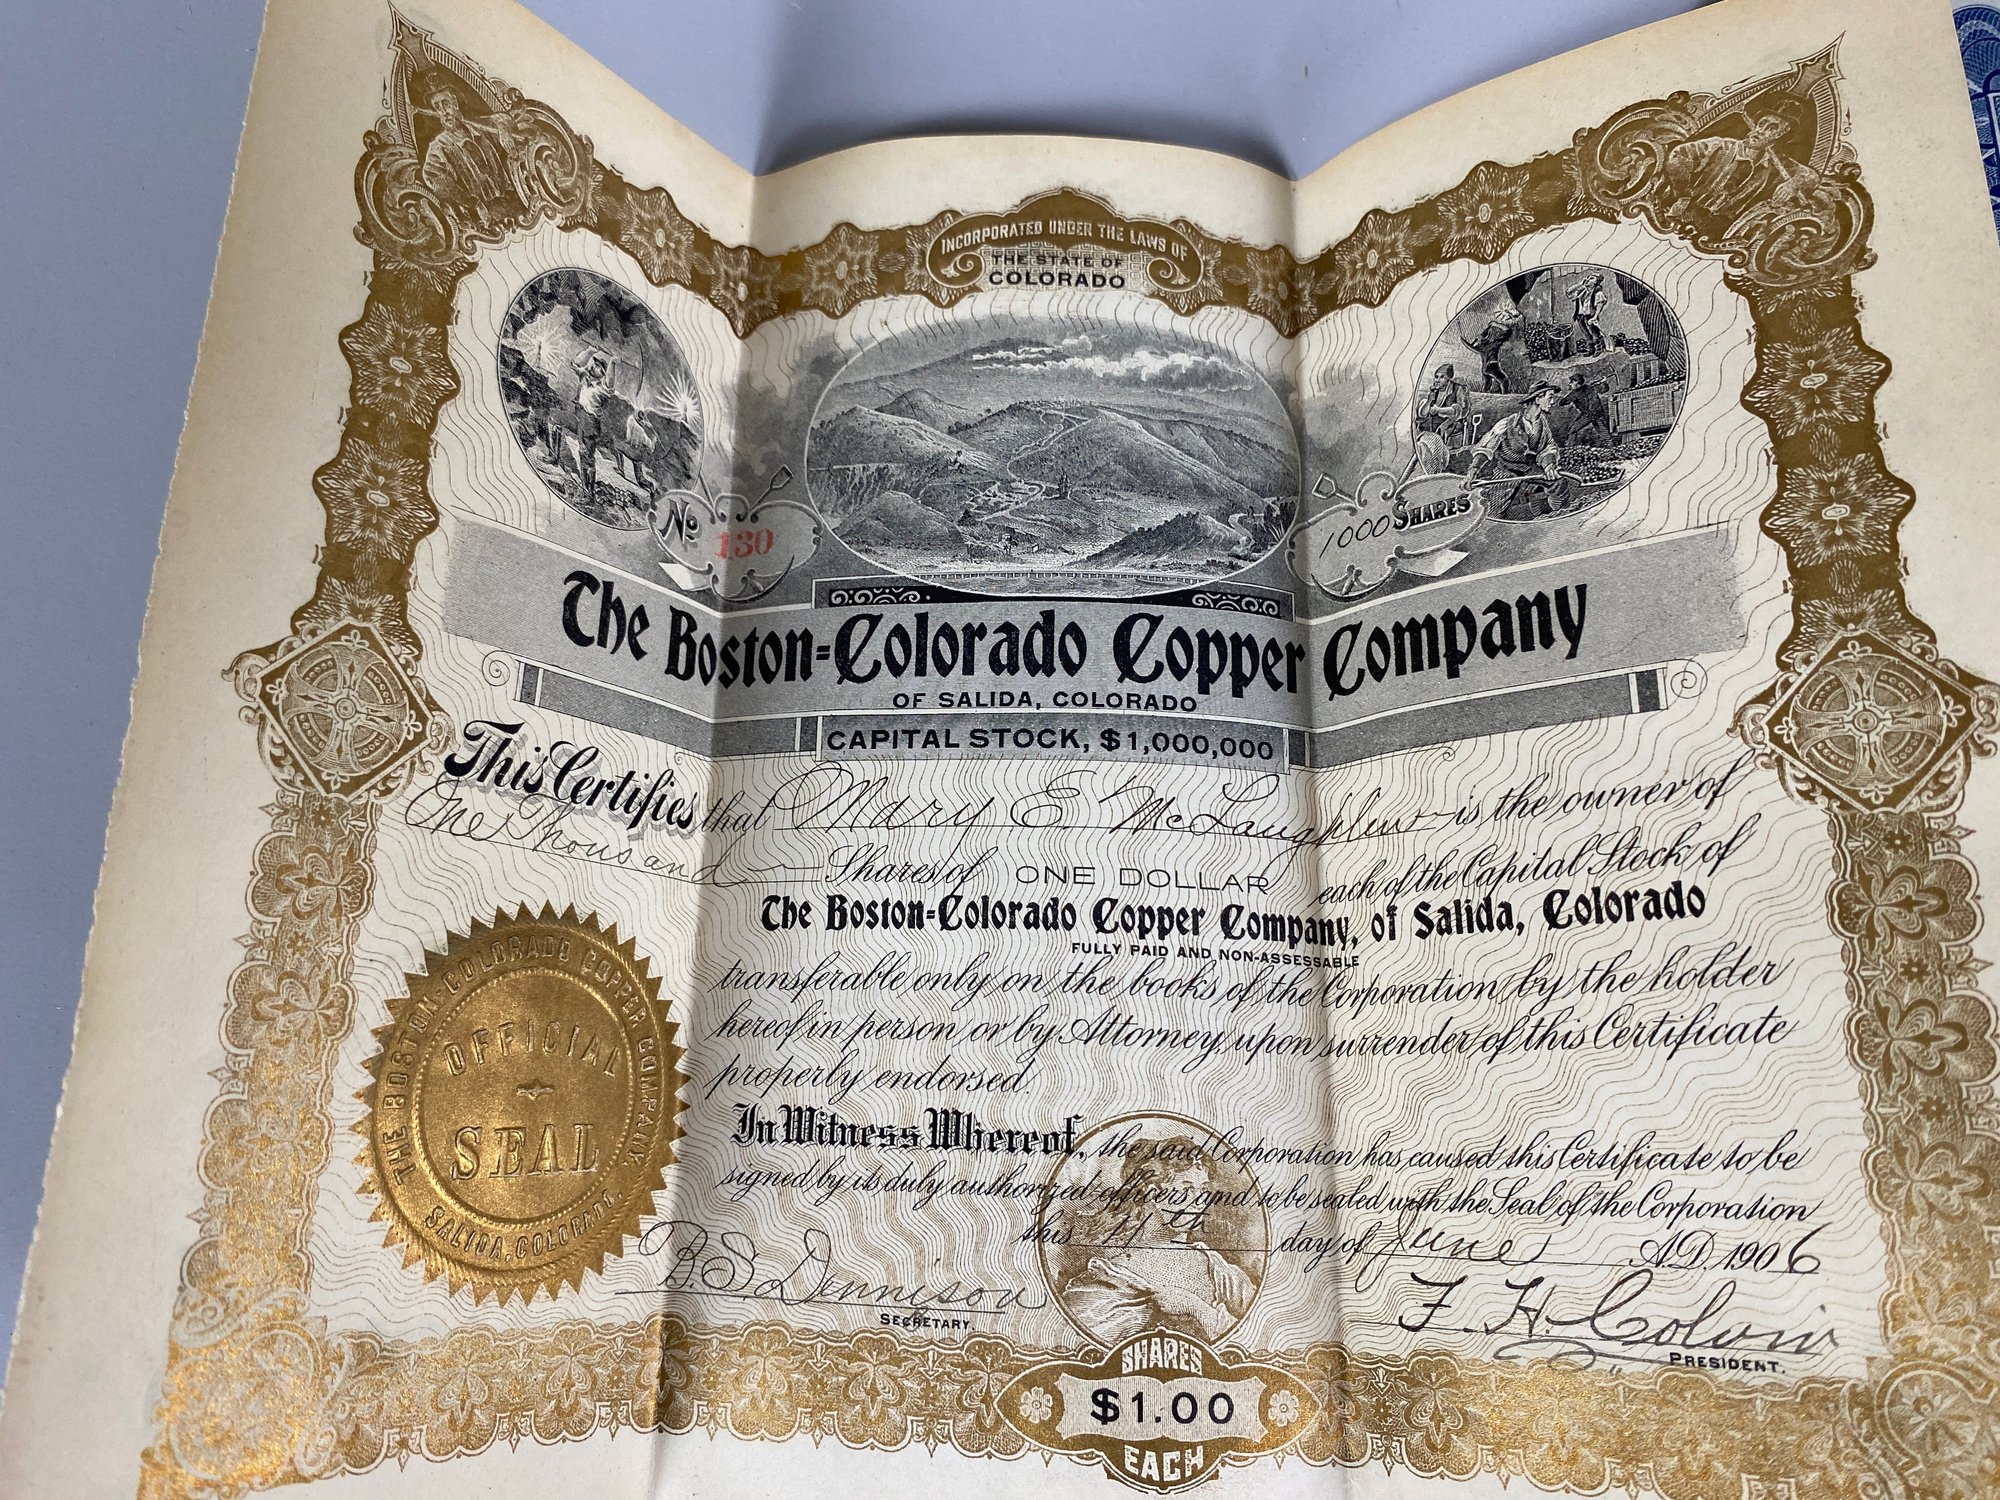 INCORPORATED UNDER THE LAWS OF
THE STATE OF
COLORADO
No 130
1000 SHARES
The Boston=Colorado Copper Company
OF SALIDA, COLORADO
CAPITAL STOCK, $1,000,000
This Certifies that Mary E. McLaughlin is the owner of
One Thousand Shares of ONE DOLLAR each of the Capital Stock of
The Boston=Colorado Copper Company, of Salida, Colorado
FULLY PAID AND NON-ASSESSABLE
transferable only on the books of the Corporation by the holder
hereof in person or by Attorney, upon surrender of this Certificate
properly endorsed.
In Witness Whereof, the said Corporation has caused this Certificate to be
signed by its duly authorized officers and to be sealed with the Seal of the Corporation
this 11th day of June A.D. 1906
B. S. Dennison
SECRETARY.
F. H.
PRESIDENT.
THE BOSTON-COLORADO COPPER COMPANY.
OFFICIAL
SEAL
SALIDA, COLORADO.
SHARES
$1.00
EACH